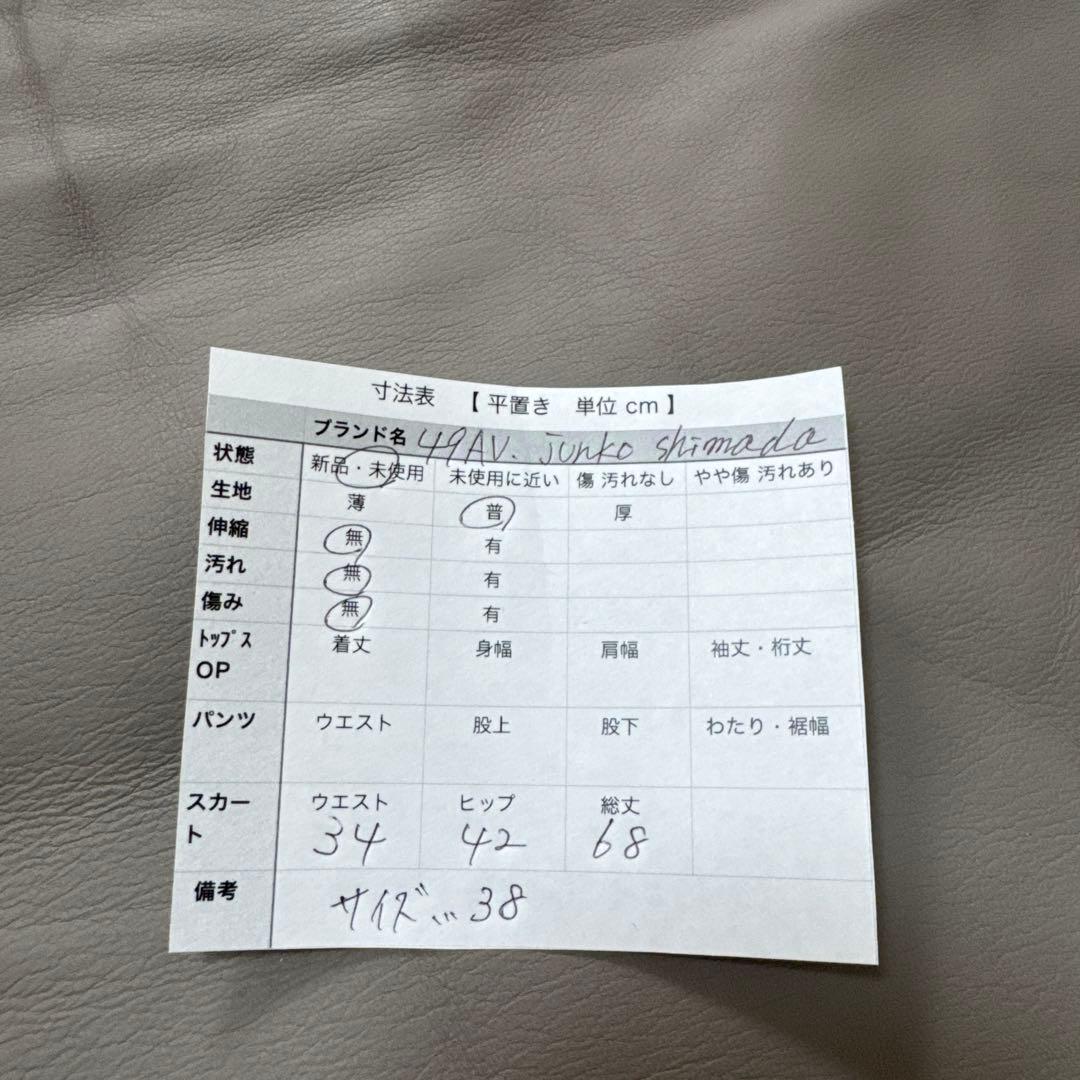 寸法表 【 平置き 単位 cm 】
ブランド名 49AV. junko shimada
状態 新品・未使用 未使用に近い 傷 汚れなし やや傷 汚れあり
生地 薄 普 厚
伸縮 無 有
汚れ 無 有
傷み 無 有
ﾄｯﾌﾟｽ 着丈 身幅 肩幅 袖丈・裄丈
OP
パンツ ウエスト 股上 股下 わたり・裾幅
スカー ウエスト ヒップ 総丈
ト 34 42 68
備考 サイズ… 38